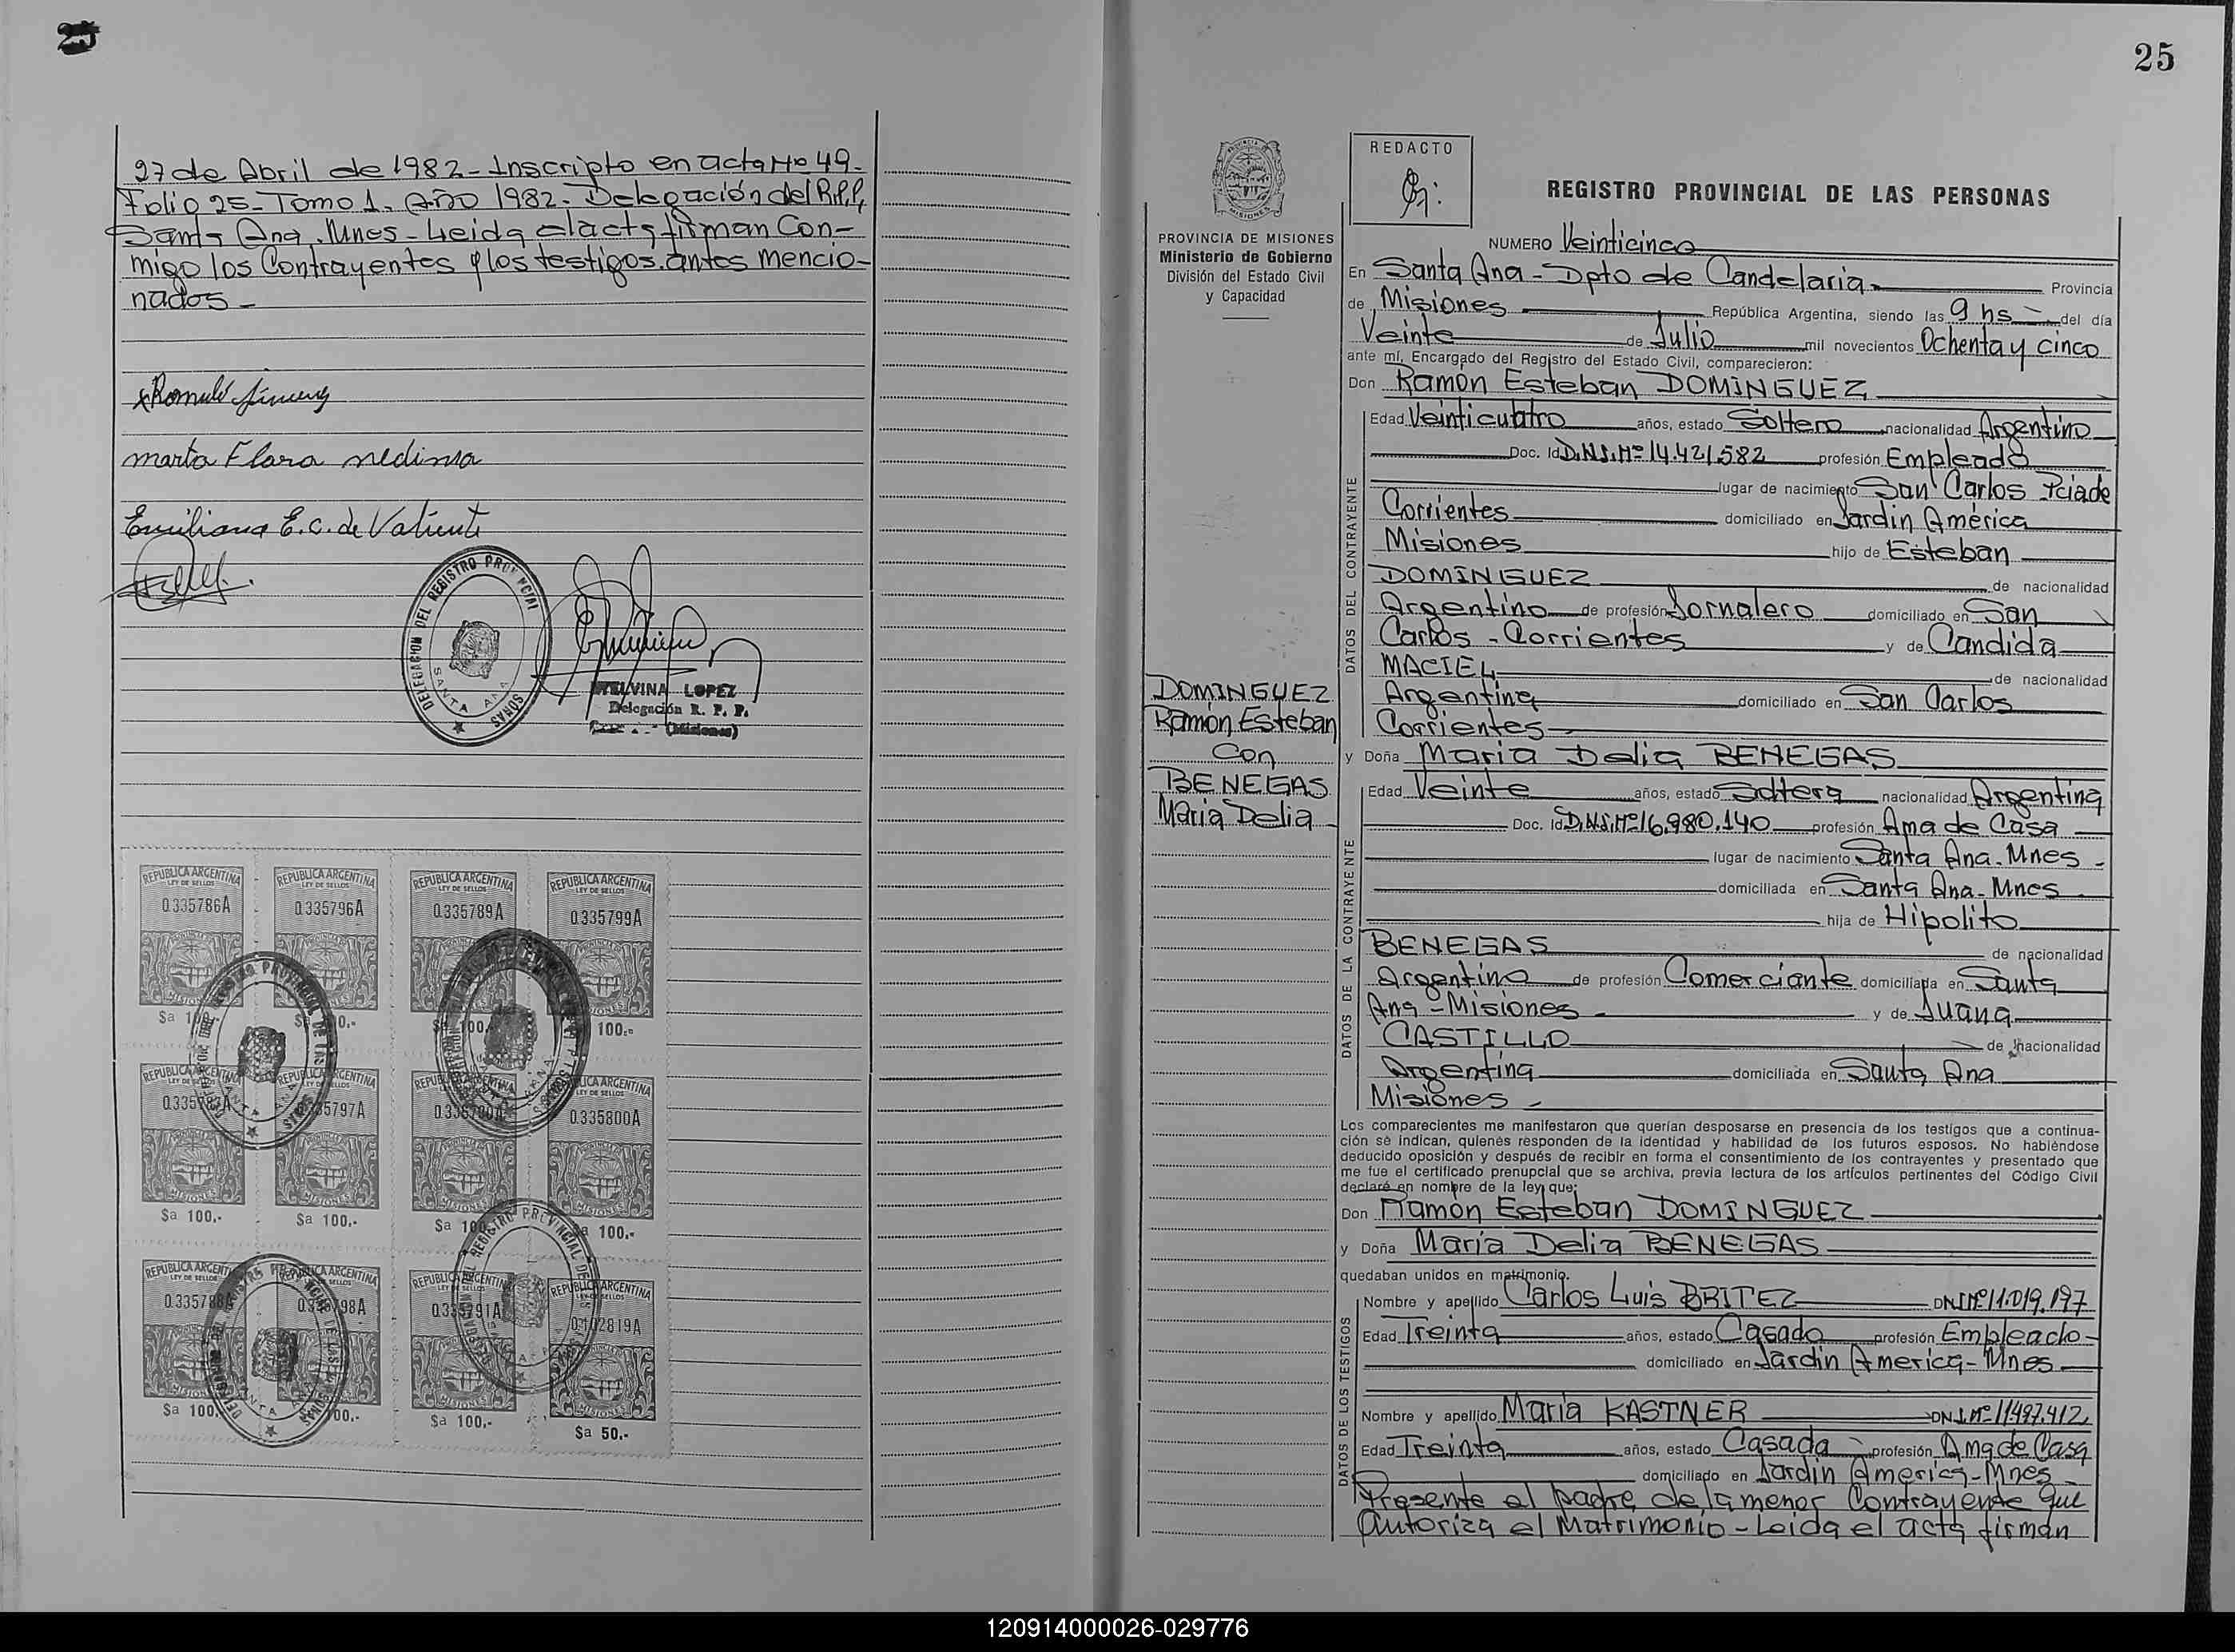 25
27 de Abril de 1982 - Inscripto en acta Nº 49-
Folio 25 - Tomo 1. Año 1982. Delegación del R.P.P.
Santa Ana. Mnes - Leida el acta firman Con-
migo los Contrayentes y los testigos antes mencio-
nados -
marta Flora medina
Emiliana E. C. de Valiente
DELEGACION DEL REGISTRO PROVINCIAL
SANTA ANA
LOPEZ
Delegación R. P. P.
(Misiones)
REPUBLICA ARGENTINA REPUBLICA ARGENTINA REPUBLICA ARGENTINA REPUBLICA ARGENTINA
LEY DE SELLOS LEY DE SELLOS LEY DE SELLOS LEY DE SELLOS
0.335786A 0.335796A 0.335789A 0.335799A
MISIONES
100.-
0.335797A 0.335800A
$a 100.- $a 100.- 100.-
$a 100.-
$a 50.-
25
REDACTO
REGISTRO PROVINCIAL DE LAS PERSONAS
PROVINCIA DE MISIONES
Ministerio de Gobierno
División del Estado Civil
y Capacidad
NUMERO Veinticinco
En Santa Ana - Dpto de Candelaria Provincia
de Misiones República Argentina, siendo las 9 hs del día
Veinte de Julio mil novecientos Ochenta y cinco
ante mí, Encargado del Registro del Estado Civil, comparecieron:
Don Ramón Esteban DOMINGUEZ
DATOS DEL CONTRAYENTE
Edad Veinticuatro años, estado Soltero nacionalidad Argentino
Doc. Id D.N.I. Nº 14.421.582 profesión Empleado
lugar de nacimiento San Carlos Pciade
Corrientes domiciliado en Jardin América
Misiones hijo de Esteban
DOMINGUEZ de nacionalidad
Argentino de profesión Jornalero domiciliado en San
Carlos - Corrientes y de Candida
MACIEL de nacionalidad
Argentina domiciliado en San Carlos
Corrientes
DOMINGUEZ
Ramón Esteban
Con
BENEGAS
Maria Delia
y Doña Maria Delia BENEGAS
DATOS DE LA CONTRAYENTE
Edad Veinte años, estado Soltera nacionalidad Argentina
Doc. Id D.N.I. Nº 16.980.140 profesión Ama de Casa
lugar de nacimiento Santa Ana. Mnes -
domiciliada en Santa Ana - Mnes
hija de Hipolito
BENEGAS de nacionalidad
Argentino de profesión Comerciante domiciliada en Santa
Ana - Misiones y de Juana
CASTILLO de nacionalidad
Argentina domiciliada en Santa Ana
Misiones -
Los comparecientes me manifestaron que querían desposarse en presencia de los testigos que a continua-
ción se indican, quienes responden de la identidad y habilidad de los futuros esposos. No habiéndose
deducido oposición y después de recibir en forma el consentimiento de los contrayentes y presentado que
me fue el certificado prenupcial que se archiva, previa lectura de los artículos pertinentes del Código Civil
declaré en nombre de la ley que:
Don Ramón Esteban DOMINGUEZ
y Doña María Delia BENEGAS
quedaban unidos en matrimonio.
DATOS DE LOS TESTIGOS
Nombre y apellido Carlos Luis BRITEZ DNI Nº 11.019.197
Edad Treinta años, estado Casado profesión Empleado -
domiciliado en Jardin America - Mnes
Nombre y apellido María KASTNER DNI. Nº 11497.412
Edad Treinta años, estado Casada profesión Ama de Casa
domiciliado en Jardin America - Mnes
Presente el padre de la menor Contrayente que
autoriza el Matrimonio - Leida el acta firman
120914000026-029776